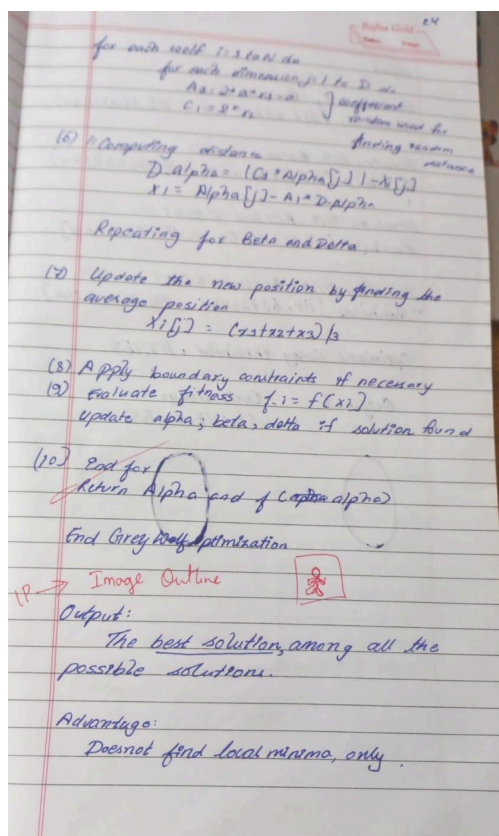 24
for each wolf i = 1 to N do
for each dimension j = 1 to D do
A1 = 2*a*r1 - a
C1 = 2*r2
coefficient
random used for
finding random
distance
(6) Computing distance
D-alpha = |C1*Alpha[j]| - Xi[j]
X1 = Alpha[j] - A1*D-Alpha
Repeating for Beta and Delta
(7) Update the new position by finding the
average position
Xi[j] = (x1+x2+x3)/3
(8) Apply boundary constraints if necessary
(9) Evaluate fitness f.i = f(xi)
Update alpha, beta, delta if solution found
(10) End for
Return Alpha and f (alpha)
End Grey Wolf Optimization
IP → Image Outline
Output:
The best solution, among all the
possible solutions.
Advantage:
Doesnot find local minima, only.